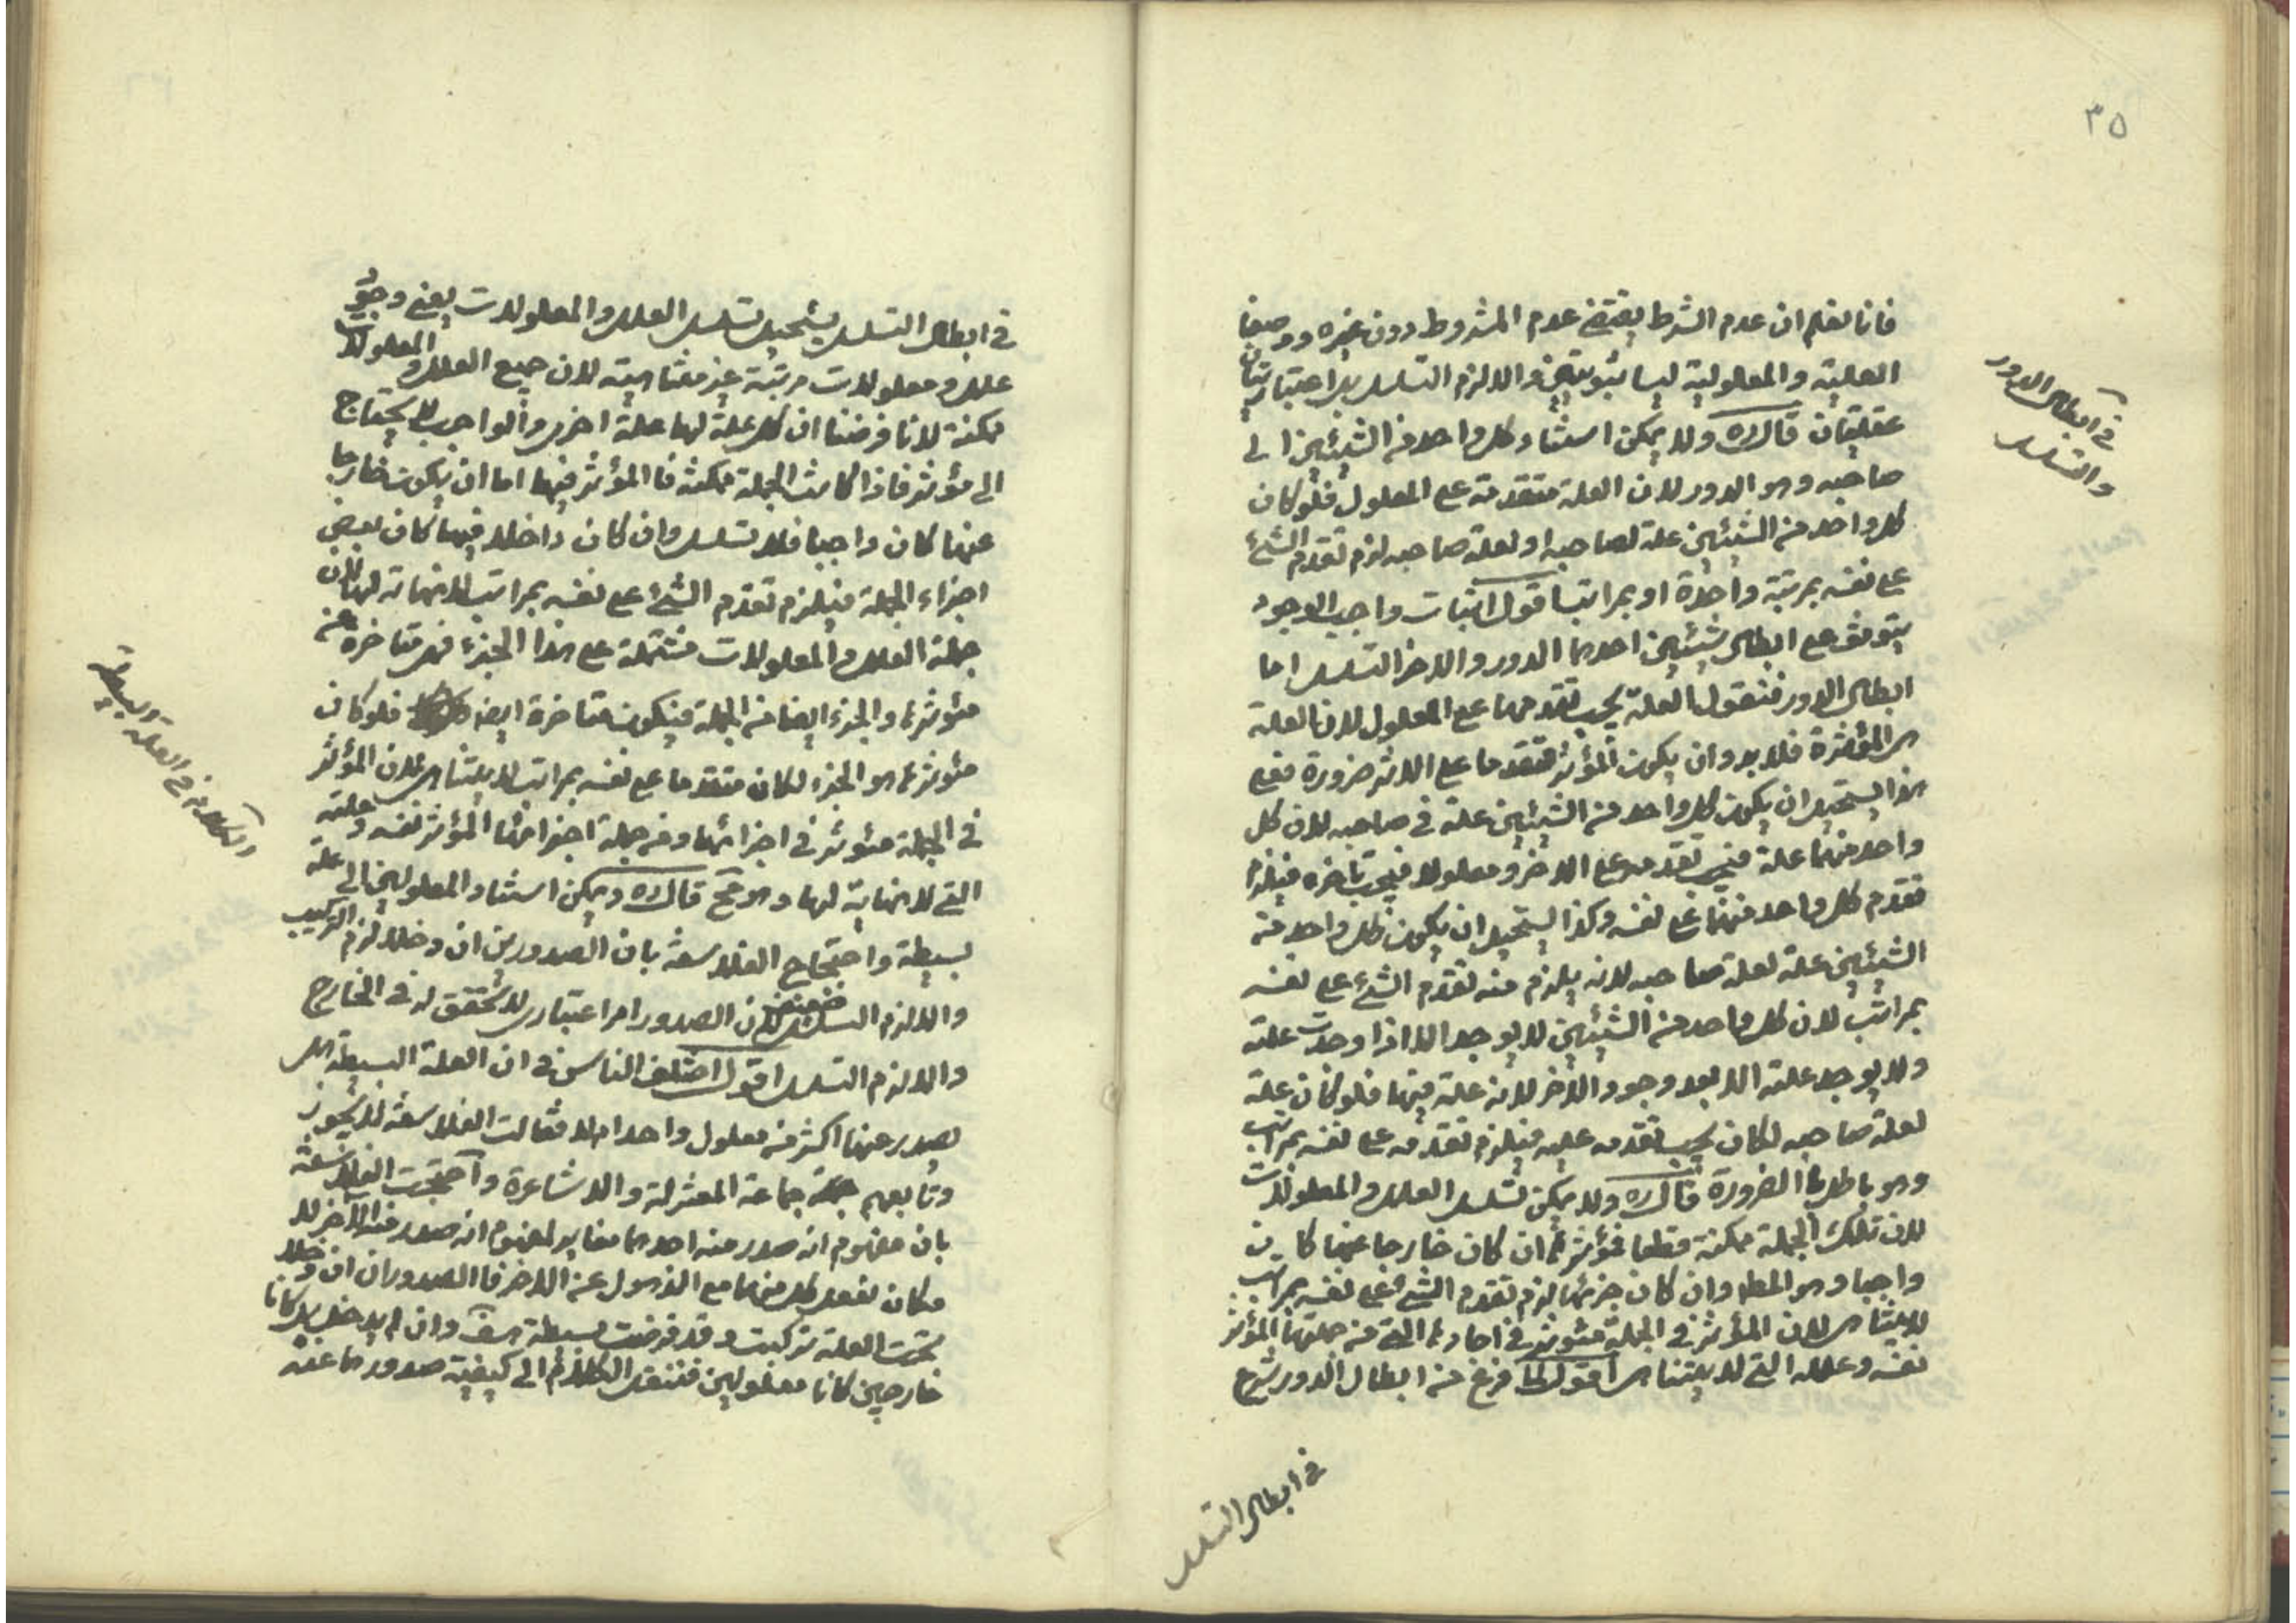 ٣٥
فانا نعلم ان عدم الشرط يقتضي عدم المشروط دون غيره ووصفا
العلية والمعلولية ليسا ثبوتيين والا لزم التسلسل بل اعتباريتان
عقليتان قال ره ولا يمكن استناد كل واحد من الشيئين الى
صاحبه وهو الدور لان العلة متقدمة على المعلول فلو كان
كل واحد من الشيئين علة لصاحبه او لعلة صاحبه لزم تقدم الشئ
على نفسه بمرتبة واحدة او بمراتب اقول اثبات واجب الوجود
يتوقف على ابطال شيئين احدهما الدور والاخر التسلسل اما
ابطال الدور فنقول العلة يجب تقدمها على المعلول لان العلة
هى المؤثرة فلا بد وان يكون المؤثر متقدما على الاثر ضرورة فعلى
هذا يستحيل ان يكون كل واحد من الشيئين علة في صاحبه لان كل
واحد منهما علة فيجب تقدمه على الاخر ومعلولا فيجب تاخره فيلزم
تقدم كل واحد منهما على نفسه وكذا يستحيل ان يكون كل واحد من
الشيئين علة لعلة صاحبه لانه يلزم منه تقدم الشئ على نفسه
بمراتب لان كل واحد من الشيئين لا يوجد الا اذا وجدت علته
ولا يوجد علته الا بعد وجود الاخر لانه علة فيها فلو كان علة
لعلة صاحبه لكان يجب تقدمه عليه فيلزم تقدمه على نفسه بمراتب
وهو باطل بالضرورة قال ره ولا يمكن تسلسل العلل والمعلولات
لان تلك الجملة ممكنة قطعا فمؤثرها ان كان خارجا عنها كانت
واجبا وهو المط وان كان جزئها لزم تقدم الشئ على نفسه بمراتب
لا يتناهى لان المؤثر في الجملة مؤثر في احادها التي من جملتها المؤثر
نفسه وعلله التي لا يتناهى اقول لما فرغ من ابطال الدور شرع
في ابطال الدور
والتسلسل
في ابطال التسلسل
في ابطال التسلسل يستحيل تسلسل العلل والمعلولات يعني وجود
علل ومعلولات مرتبة غير متناهية لان جميع العلل والمعلولات
ممكنة لانا فرضنا ان كل علة لها علة اخرى والواجب لا يحتاج
الى مؤثر فاذا كانت الجملة ممكنة فالمؤثر فيها اما ان يكون خارجا
عنها كان واجبا فلا تسلسل وان كان داخلا فيها كان بعض
اجزاء الجملة فيلزم تقدم الشئ على نفسه بمراتب لا نهاية لها لان
جملة العلل والمعلولات مشتملة على هذا الجزء فهى متاخرة عن
مؤثرها والجزء ايضا من الجملة فيكون متاخرة ايضا فلو كان
مؤثرها هو الجزء لكان متقدما على نفسه بمراتب لا يتناهى لان المؤثر
في الجملة مؤثر في اجزائها ومن جملة اجزائها المؤثر نفسه وعلته
التي لا نهاية لها وهو مح قال ره ويمكن استناد المعلولين الى علة
بسيطة واحتجاج الفلاسفة بان الصدورين ان دخلا لزم التركيب
والا لزم التسلسل ضعيف لان الصدور امر اعتباري لا تحقق له في الخارج
والا لزم التسلسل اقول اختلف الناس في ان العلة البسيطة هل
يصدر عنها اكثر من معلول واحد ام لا فقالت الفلاسفة لا يجوز
وتابعهم جماعة المعتزلة والاشاعرة واحتجت الفلاسفة
بان مفهوم انه صدر منه احدهما مغاير لمفهوم انه صدر منه الآخر لا
مكان تعقل كل منهما مع الذهول عن الاخر فالصدوران ان دخلا
تحت العلة تركبت وقد فرضت بسيطة هف وان لم يدخلا بل كانا
خارجين كانا معلولين فننقل الكلام الى كيفية صدورهما عنه
والكلام في العلة البسيطة